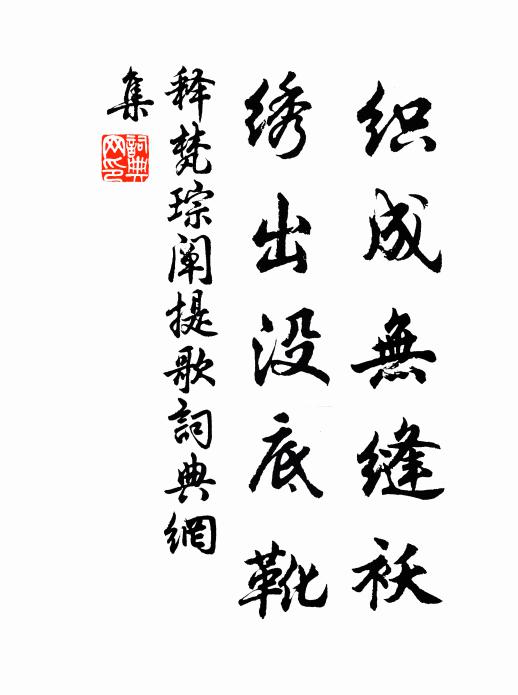 织成無缝袄
绣出没底靴
释梵琮阐提歌詞典網
集
詞典
网印